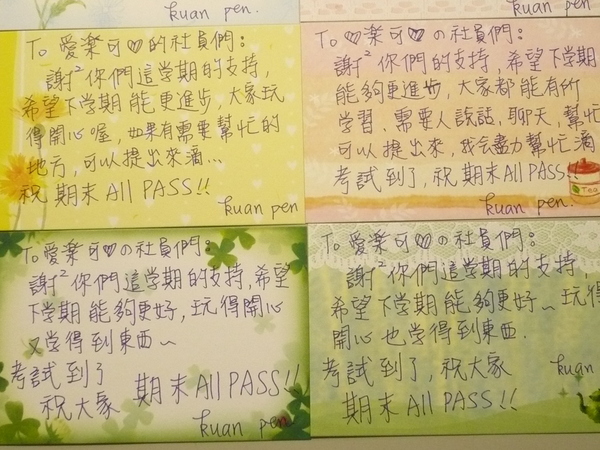 kuan pen.
kuan pen.
To 愛樂可♡的社員們:
謝²你們這學期的支持,
希望下学期能更進步,大家玩
得開心喔,如果有需要幫忙的
地方,可以提出來滴...
祝 期末All PASS!!
kuan pen
To ♡樂可♡の社員們:
謝²你們的支持,希望下學期
能夠更進步,大家都能有所
学習、需要人說話、聊天,幫忙
可以提出來,我会盡力幫忙滴
考試到了,祝 期末All PASS!!
Tea
kuan pen.
To 愛樂可♡の社員們:
謝²你們這学期的支持,希望
下学期能夠更好,玩得開心
又学得到東西~
考試到了
祝大家 期末All PASS!!
kuan pen
To 愛樂可♡の社員們:
謝²你們這學期的支持,
希望下学期能夠更好~玩得
開心也学得到東西.
考試到了,祝大家
期末All PASS!!
kuan